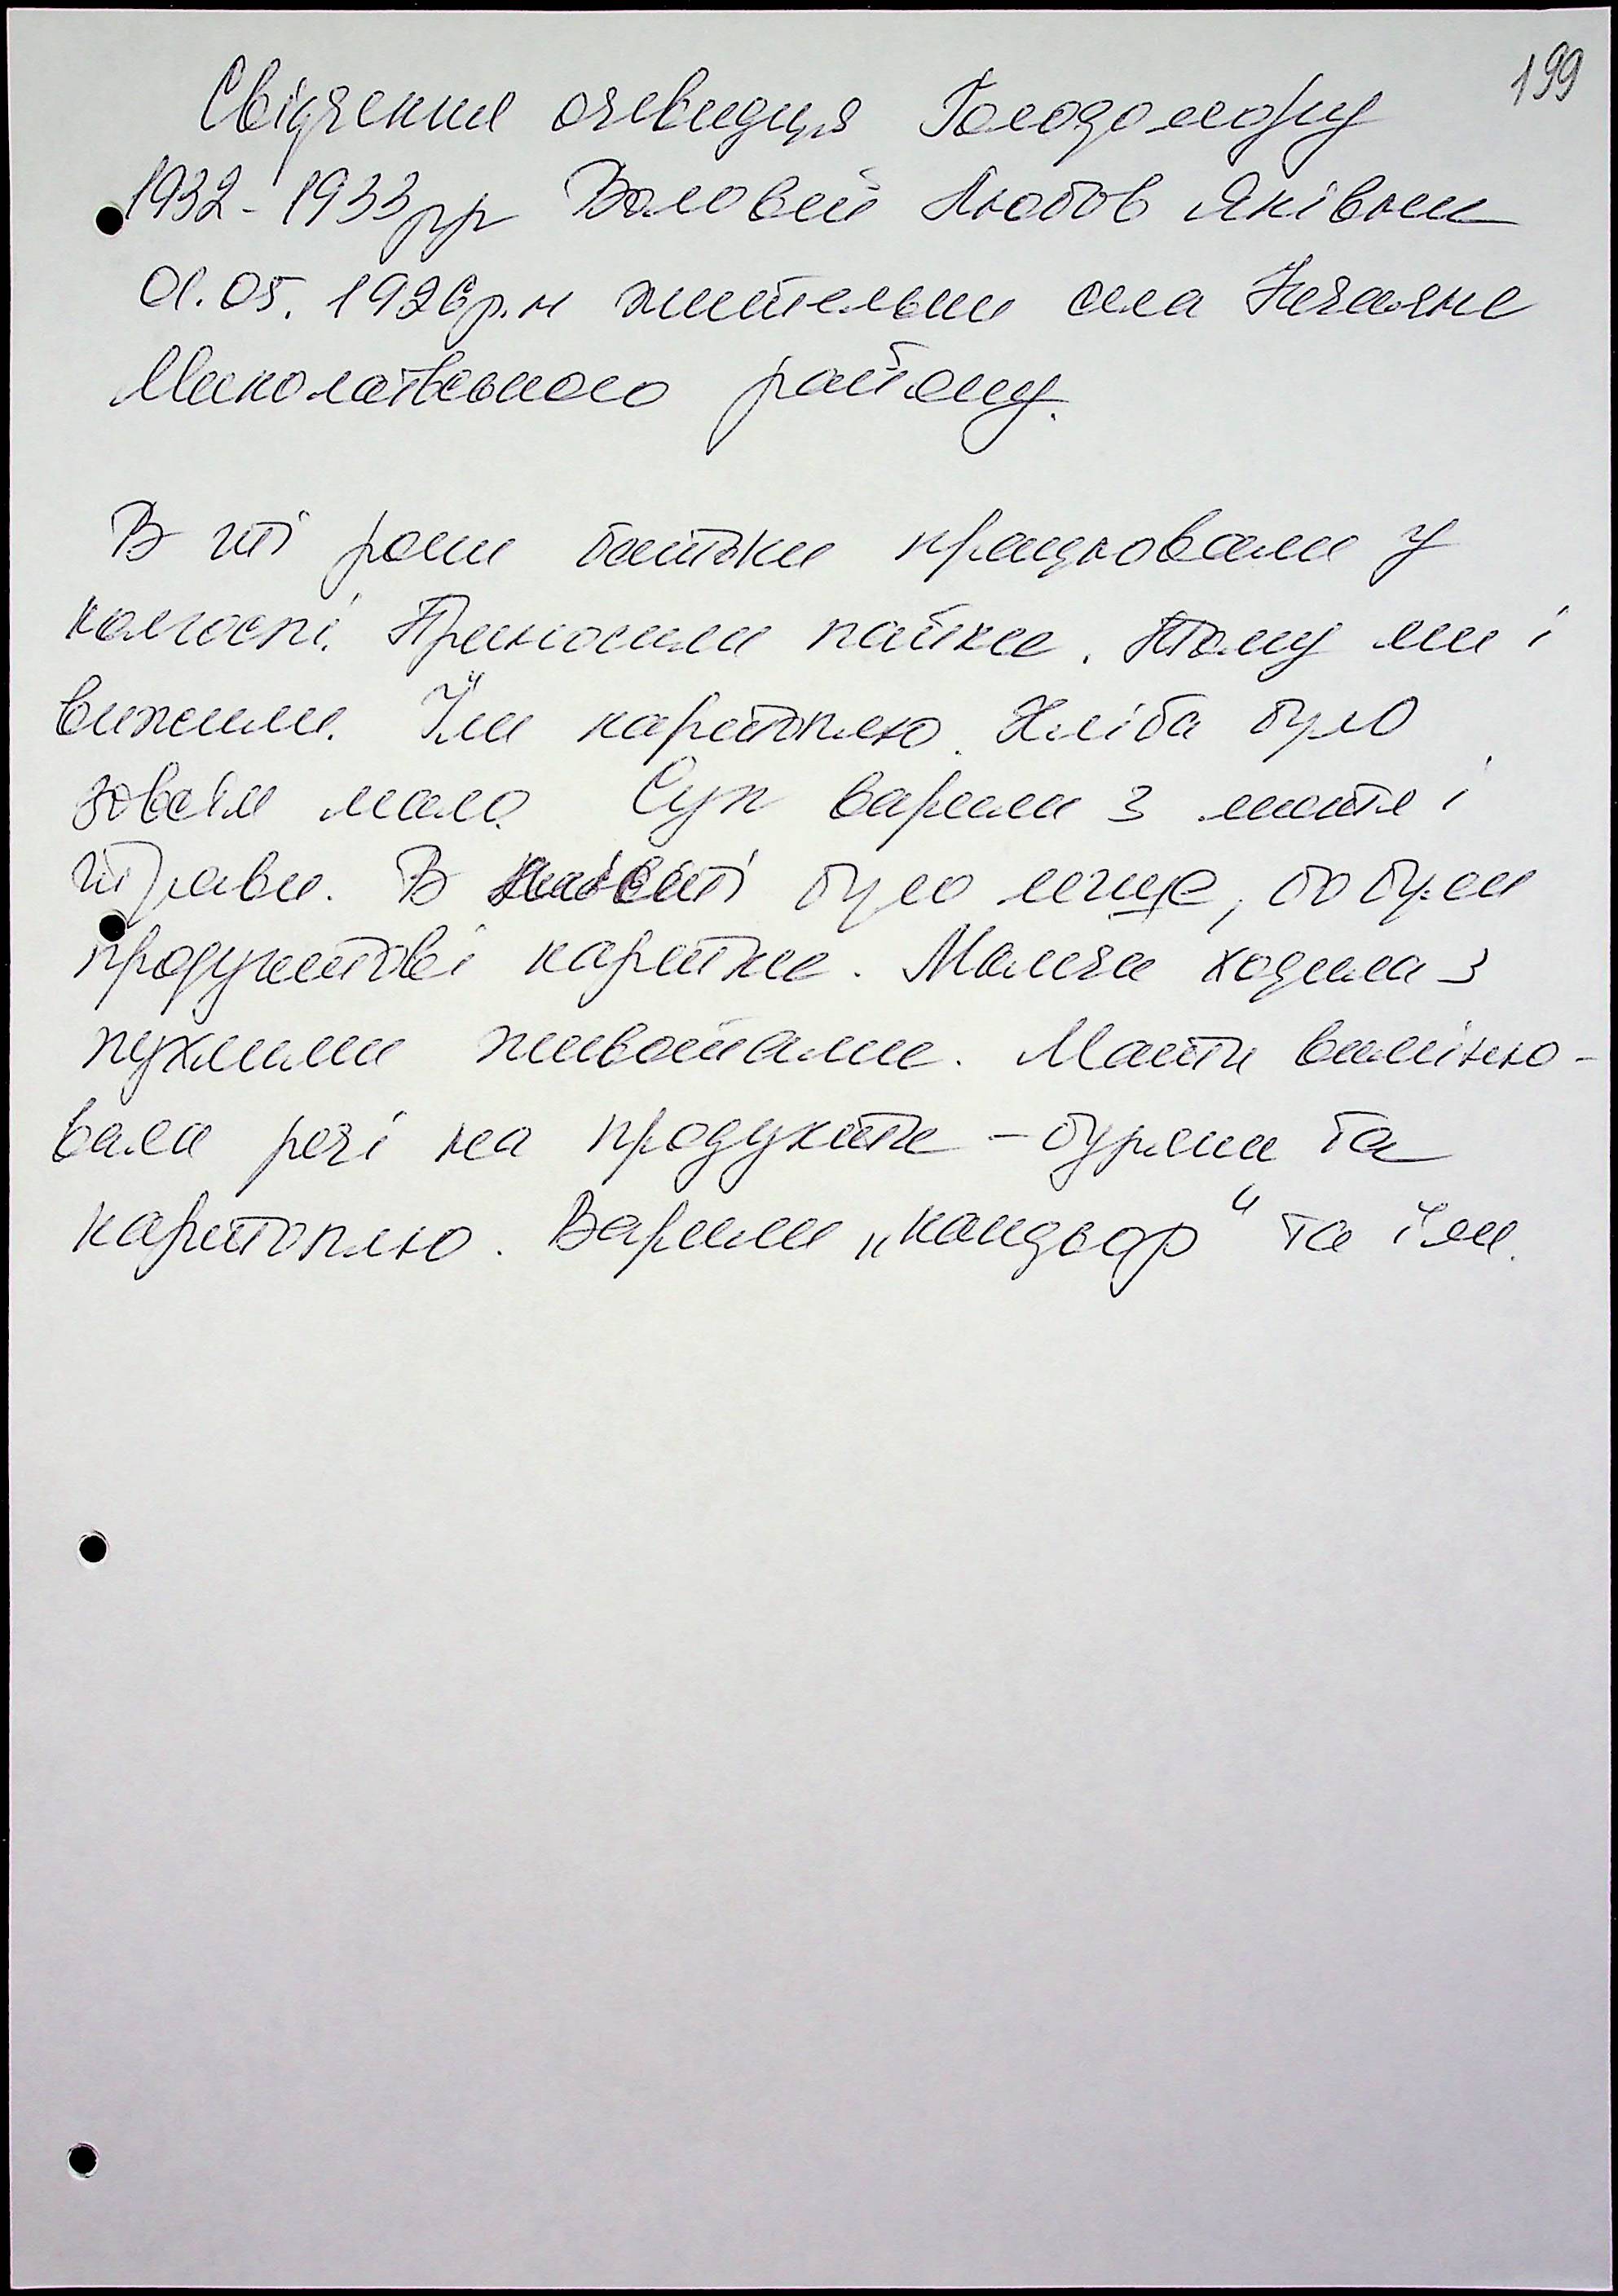 199
Свідчення очевидця Голодомору
1932-1933рр Воловей Любов Яківни
01.05.1926р.н жительки села Нечаяне
Миколаївського району.
В ті роки батьки працювали у
колгоспі. Приносили пайки. Тому ми і
вижили. Їли картоплю. Хліба було
зовсім мало. Суп варили з листя і
трави. В місті було легше, бо були
продуктові картки. Малеча ходила з
пухлими животами. Мати виміню-
вала речі на продукти - буряки та
картоплю. Варили „кандьор“ та їли.